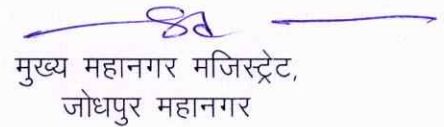 Sd
मुख्य महानगर मजिस्ट्रेट,
जोधपुर महानगर